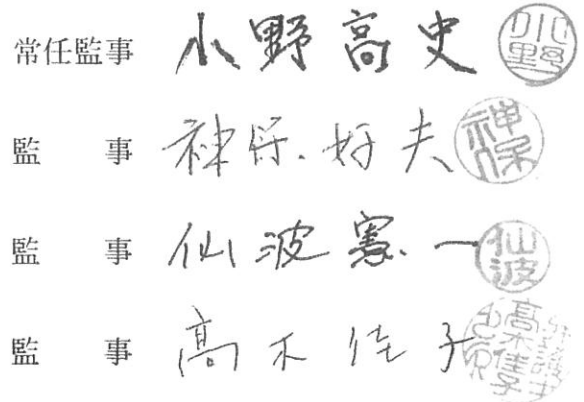 常任監事 小野高史 小野
監事 神保好夫 神保
監事 仙波憲一 仙波
監事 高木佳子 高木佳子